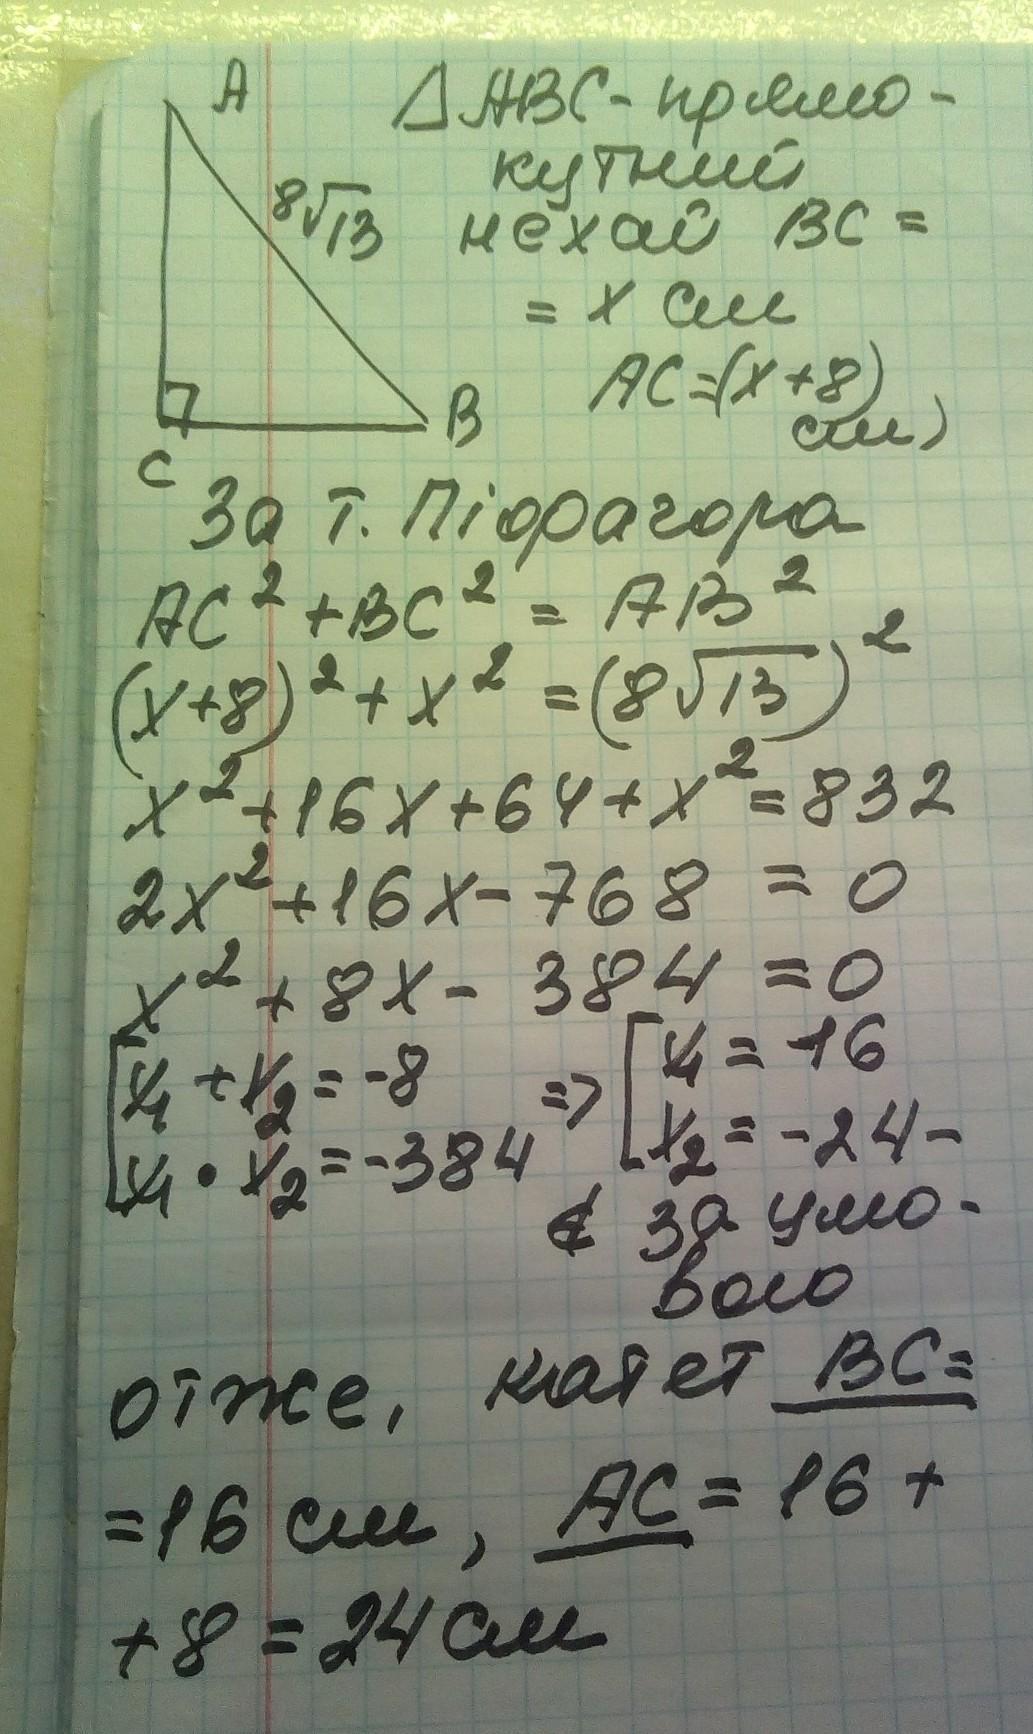 A
8√13
B
C
△ABC - прямо-
кутний
нехай BC =
= x см
AC = (x+8)
см)
За т. Піфагора
AC² + BC² = AB²
(x+8)² + x² = (8√13)²
x² + 16x + 64 + x² = 832
2x² + 16x - 768 = 0
x² + 8x - 384 = 0
[x₁ + x₂ = -8 => [x₁ = 16
[x₁ • x₂ = -384 [x₂ = -24 -
∉ за умо-
вою
отже, катет BC =
= 16 см, AC = 16 +
+ 8 = 24 см